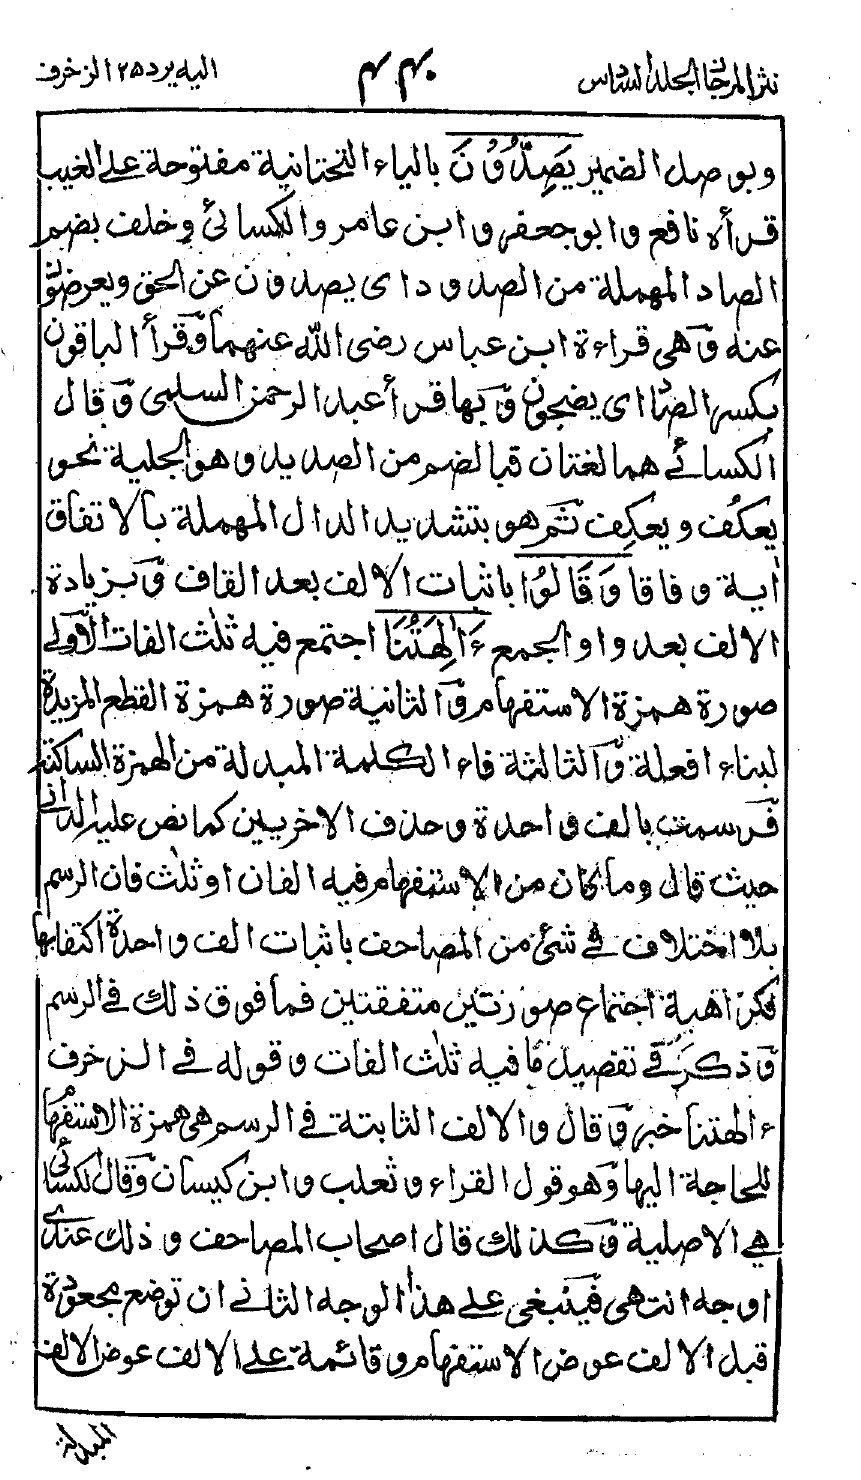 نثر المرجان الجلد السادس ۴۴۰ اليه يرد ۲۵ الزخرف
وبوصل الضمير يَصِدُّوْنَ بالياء التحتانية مفتوحة على الغيب
قرأه نافع وابو جعفر وابن عامر والكسائي وخلف بضم
الصاد المهملة من الصدود اى يصدون عن الحق ويعرضون
عنه وهى قراءة ابن عباس رضى الله عنهما وقرأ الباقون
بكسر الصاد اى يضجون وبها قرأ عبد الرحمن السلمى وقال
الكسائے هما لغتان فبالضم من الصديد وهو الجلية نحو
يعكُف ويعكِف ثم هو بتشديد الدال المهملة بالاتفاق
اٰية وفاقا وَقَالُوْا باثبات الالف بعد القاف وبزيادة
الالف بعد واو الجمع ءَاٰلِهَتُنَا اجتمع فيه ثلٰث الفات الاولى
صورة همزة الاستفهام والثانية صورة همزة القطع المزيدة
لبناء افعلة والثالثة فاء الكلمة المبدلة من الهمزة الساكنة
فرسمت بالف واحدة وحذف الاخريين كما نص عليه الدانى
حيث قال وما كان من الاستفهام فيه الفان او ثلٰث فان الرسم
بلا اختلاف فے شئ من المصاحف باثبات الف واحدة اكتفا بها
فكراهية اجتماع صورتين متفقتين فما فوق ذلك فے الرسم
وذكر فے تفصيل ما فيه ثلٰث الفات وقوله فے الزخرف
ءالهتنا خير وقال والالف الثابتة فے الرسم هى همزة الاستفهام
للحاجة اليها وهو قول الفراء وثعلب وابن كيسان وقال الكسائى
هي الاصلية وكذلك قال اصحاب المصاحف وذلك عندى
اوجه انتهى فينبغى على هذا الوجه الثانے ان توضع مجعودة
قبل الالف عوض الاستفهام وقائمة على الالف عوض الالف
المبدلة